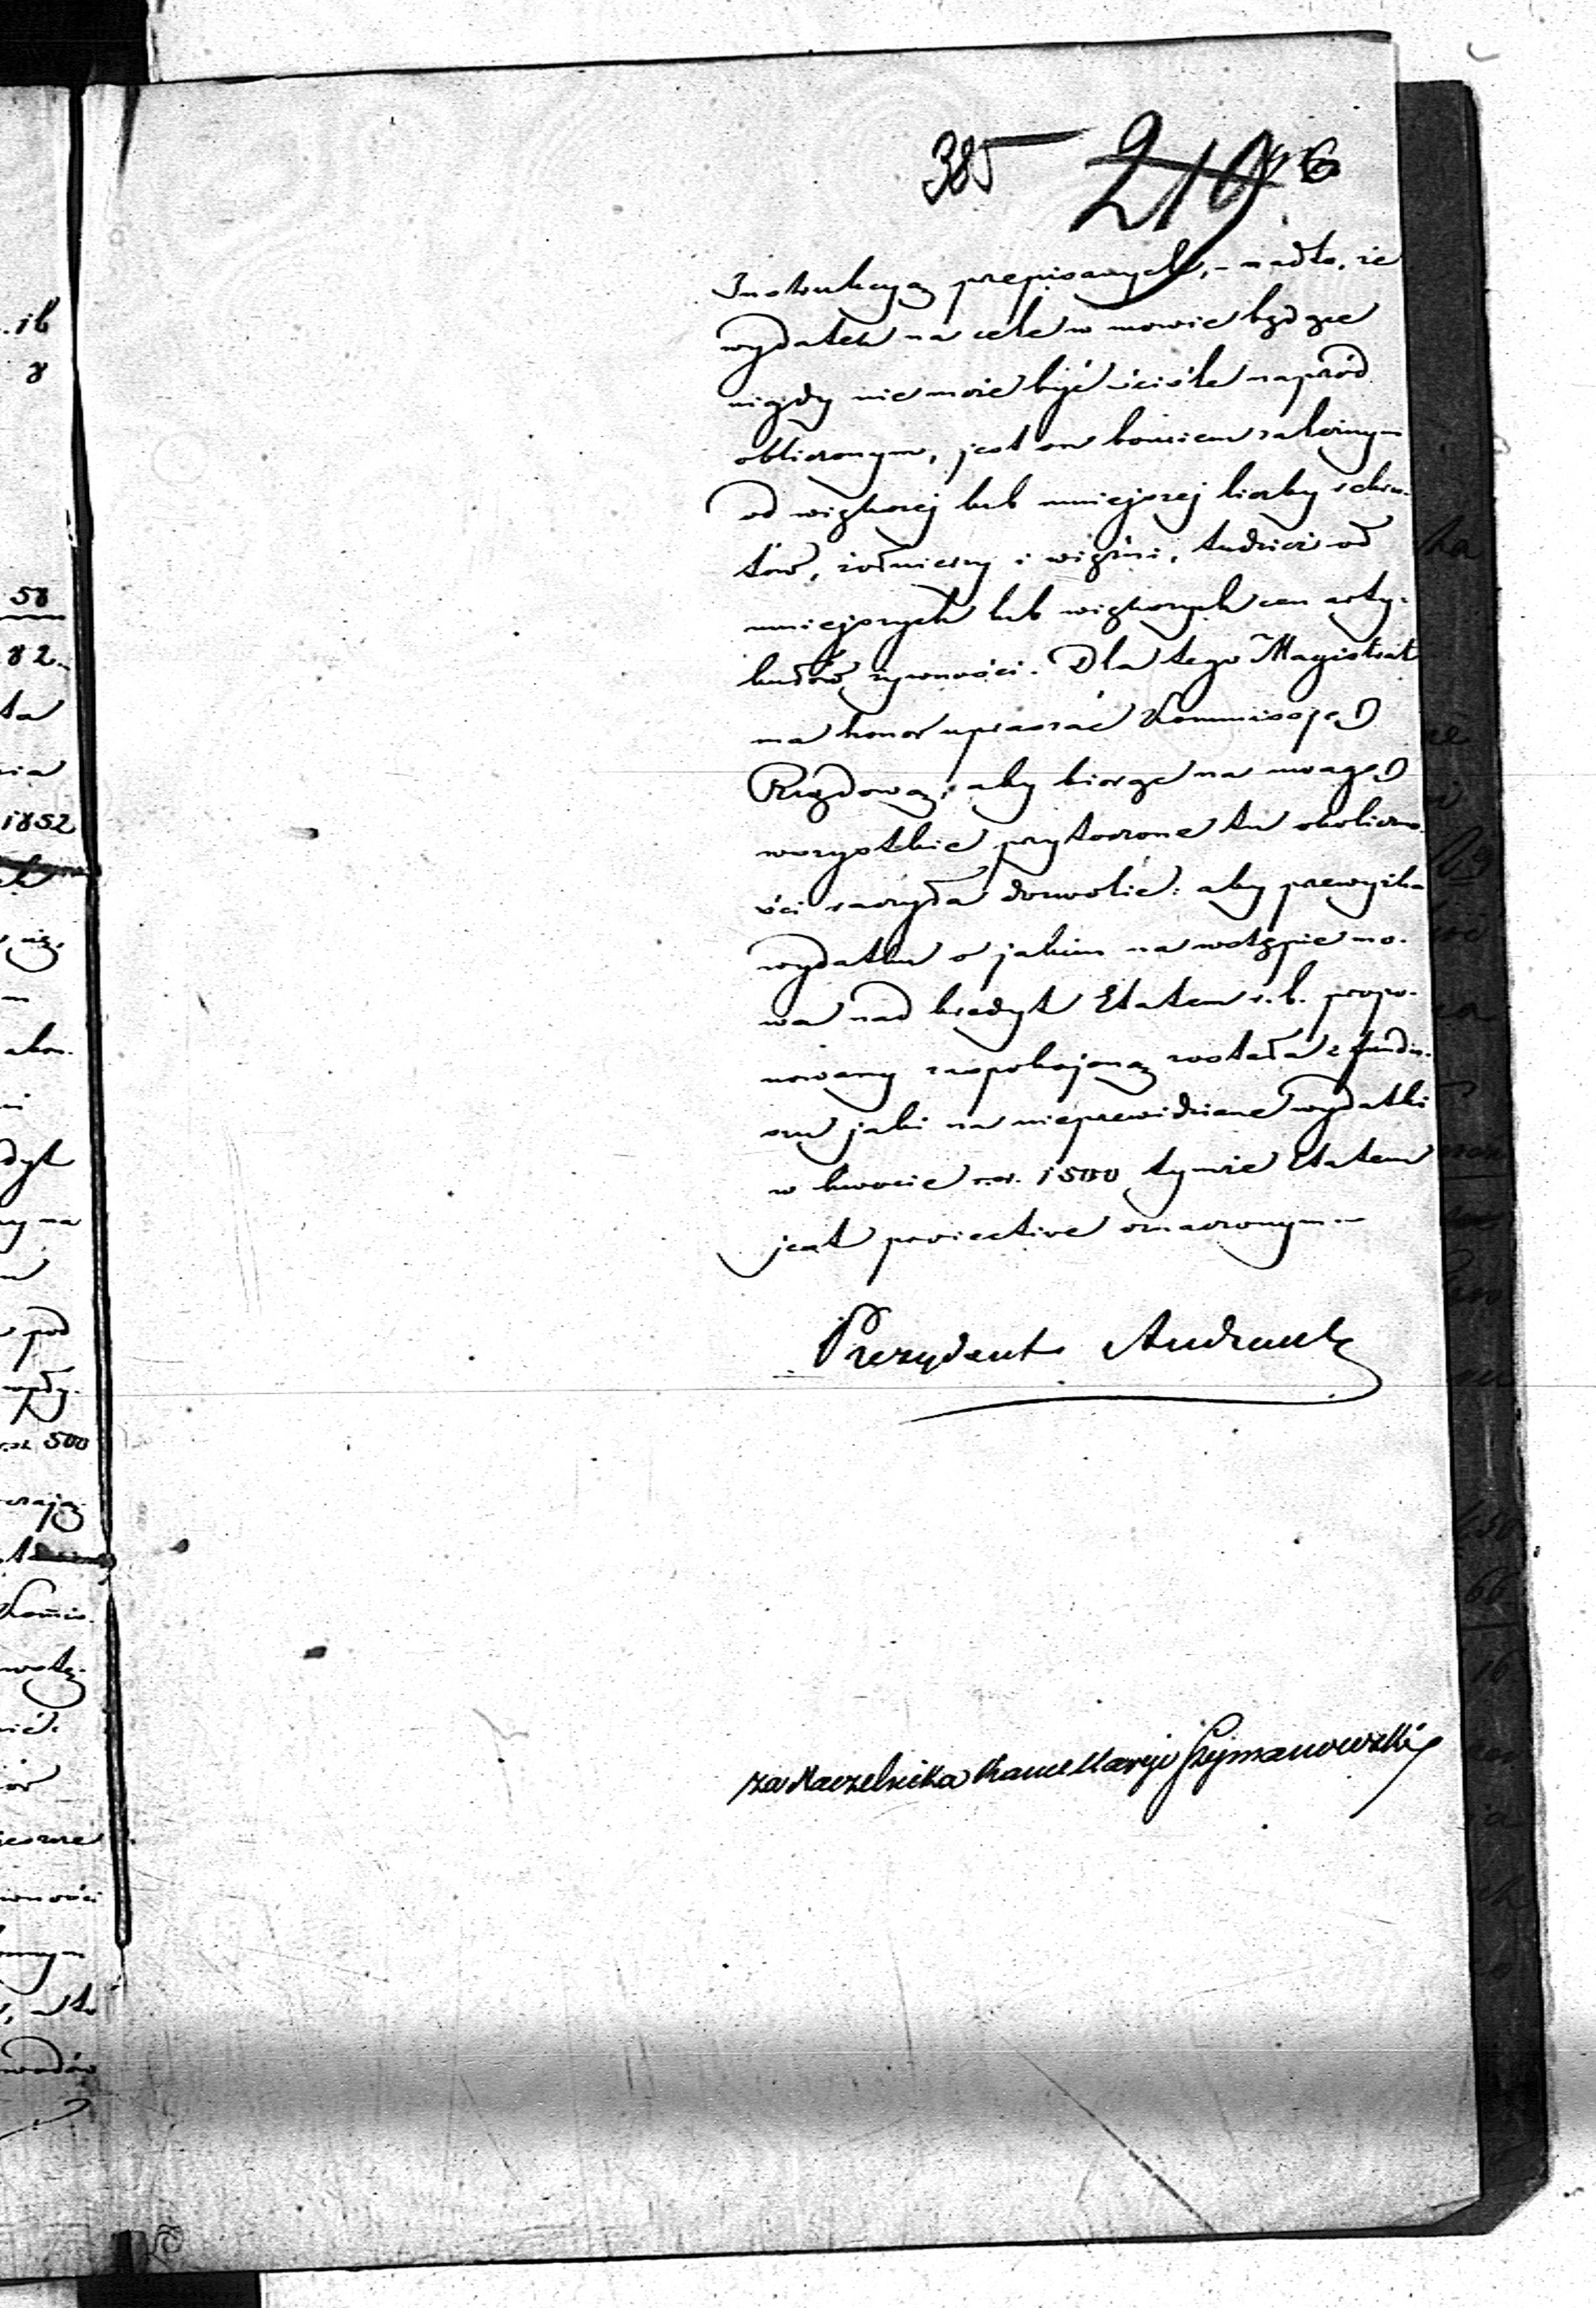 385 219
Instrukcyą przepisanych, - nadto, że
wydatek na cele w mowie będące
nigdy nie może być ściśle naprzód
obliczonym, jest on bowiem zależnym
od większej lub mniejszej liczby rekru-
tów, żołnierzy i więźni, tudzież od
mniejszych lub większych cen arty-
kułów żywności. Dla tego Magistrat
ma honor upraszać Kommissję
Rządową, aby biorąc na uwagę
wszystkie przytoczone tu okoliczno-
ści raczyła dozwolić: aby przewyżka
wydatku o jakim na wstępie mo-
wa nad kredyt Etatem r. b. propo-
nowany zaspokojoną została z fundu-
szu jaki na nieprzewidziane wydatki
w kwocie rsr. 1500 tymże Etatem
jest proiective oznaczonym.
Prezydent Andrault
za Naczelnika Kancellaryi Szymanowski